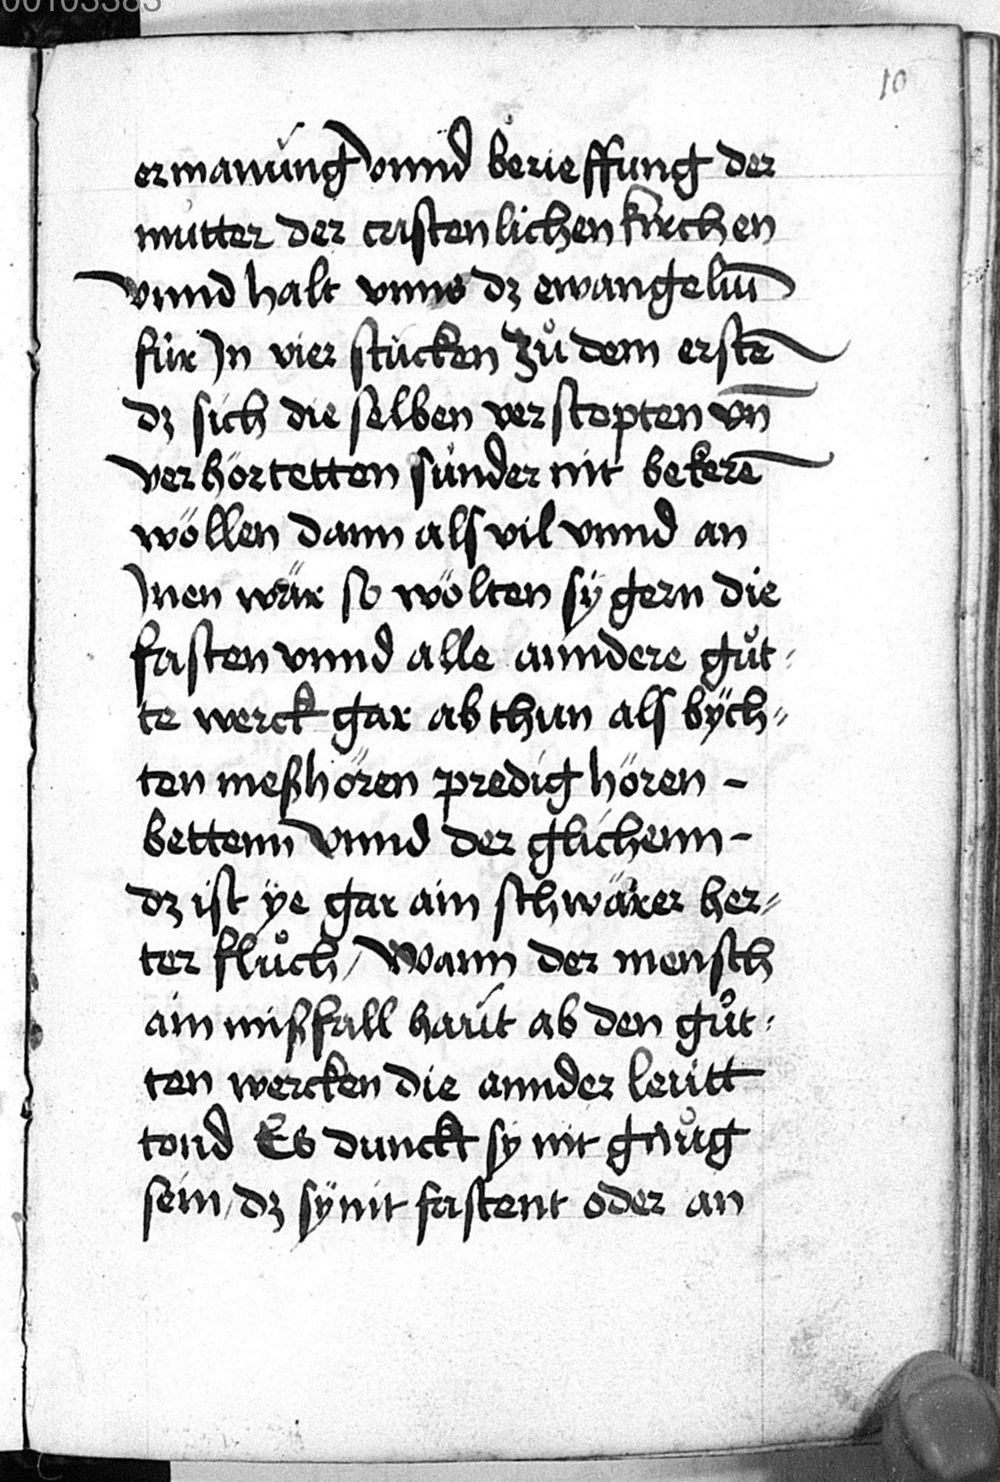 00103383
10
ermanung vnnd berieffung der
mutter der cristenlichen kirchen
vnnd halt vnns dz ewangeliu̅
für Jn vier stucken Zů dem erste̅
dz sich die selben verstopten vn̅
verhörtetten sünder nit bekere̅
wöllen dann als vil vnnd an
Jnen wär so wölten sÿ gern die
fasten vnnd alle anndere gůt-
te werck gar abthun als bÿch=
ten meßhören predig hören -
bettenn Vnnd der glichenn -
dz ist ÿe gar ain schwärer her=
ter flůch / Wann der mensch
ain mißfall haut ab den gůt-
ten wercken die annder leütt
tond Es dunckt sy nit gnůg
sein / dz sÿ nit fastent oder an